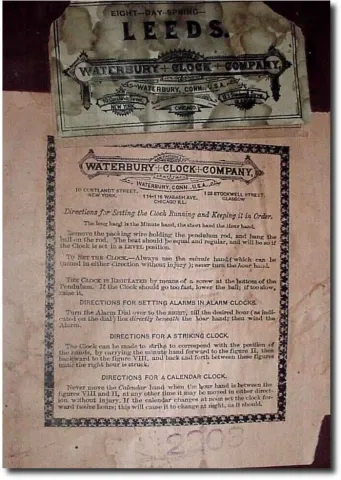 EIGHT—DAY—SPRING—
LEEDS.
WATERBURY CLOCK COMPANY,
WATERBURY, CONN., U.S.A.
NEW YORK
CHICAGO
GLASGOW
WATERBURY CLOCK COMPANY,
WATERBURY, CONN., U.S.A.
10 CORTLANDT STREET,
NEW YORK.
114-116 WABASH AVE.
CHICAGO ILL.
STOCKWELL STREET,
GLASGOW
Directions for Setting the Clock Running and Keeping it in Order.
The long hand is the Minute hand, the short hand the Hour hand.
Remove the packing wire holding the pendulum rod, and hang the
ball on the rod. The beat should be equal and regular, and will be so if
the Clock is set in a LEVEL position.
To SET THE CLOCK—Always use the minute hand( which can be
turned in either direction without injury); never turn the hour hand.
THE CLOCK IS REGULATED by means of a screw at the bottom of the
Pendulum. If the Clock should go too fast, lower the ball; if too slow,
raise it.
DIRECTIONS FOR SETTING ALARMS IN ALARM CLOCKS.
Turn the Alarm Dial over to the till the desired hour (as indi-
cated on the dial) lies directly beneath the hour hand; then wind the
Alarm.
DIRECTIONS FOR A STRIKING CLOCK.
The Clock can be made to strike to correspond with the position of
the hands, by carrying the minute hand forward to the figure II, then
backward to the figure VIII, and back and forth between these figures
until the right hour is struck.
DIRECTIONS FOR A CALENDAR CLOCK.
Never move the Calendar hand when the hour hand is between the
figures VIII and II, at any other time it may be moved in either direct-
ion without injury. If the calendar changes at noon set the clock for-
ward twelve hours; this will cause it to change at night, as it should.
2705